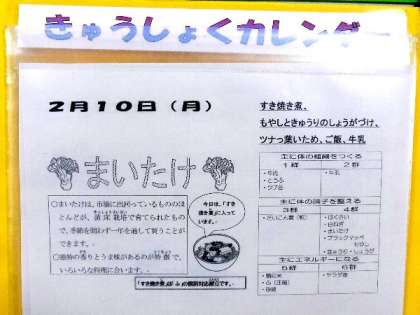 きゅうしょくカレンダー
2月10日（月）
すき焼き煮、
もやしときゅうりのしょうがづけ、
ツナっ葉いため、ご飯、牛乳
まいたけ
○まいたけは、市場に出回っているもののほ
とんどが、菌床栽培で育てられたもの
で、季節を問わず一年を通して買うことが
できます。
○独特の香りとうま味があるのが特徴で、
いろいろな料理に合います。
今日は、「すき
焼き煮」に入って
います。
主に体の組織をつくる
1群 2群
・牛肉
・とうふ
・ツナ缶
・牛乳
主に体の調子を整える
3群 4群
・はくさい
・白ねぎ
・まいたけ
・ブラックマッペ
もやし
・きゅうり ・しょうが
主にエネルギーになる
5群 6群
・サラダ油